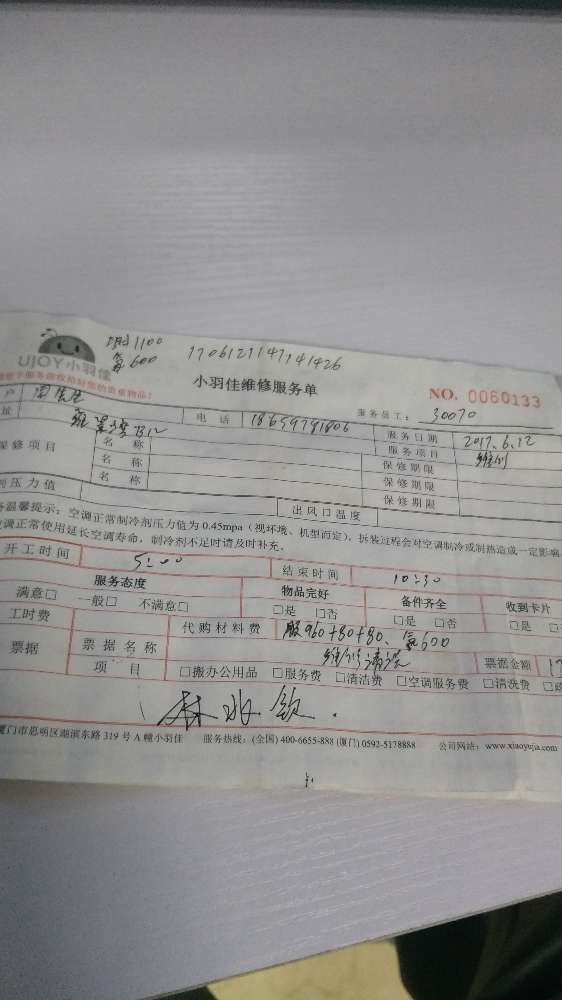 UJOY小羽佳
1100
氟600
170612114141426
小羽佳维修服务单
NO. 0060133
服务员工: 30070
户
址
电 话 18659791806
服务日期 2017.6.12
保修项目
名 称
服务项目 维修
名 称
保修期限
名 称
保修期限
保修期限
剂压力值
出风口温度
温馨提示：空调正常制冷剂压力值为 0.45mpa（视环境、机型而定），拆装过程会对空调制冷或制热造成一定影响
调正常使用延长空调寿命，制冷剂不足时请及时补充。
开工时间 5:00
结束时间 10:30
服务态度
物品完好
备件齐全
收到卡片
满意□ 一般□ 不满意□
□是 □否
□是 □否
□是
工时费
代购材料费 服960+80+80、氟600
票据
票据名称
维修清洗
票据金额
项 目
□搬办公用品 □服务费 □清洁费 □空调服务费 □清洗费
厦门市思明区湖滨东路 319 号 A 幢小羽佳 服务热线：(全国) 400-6655-888 (厦门) 0592-5178888 公司网站：www.xiaoyujia.com